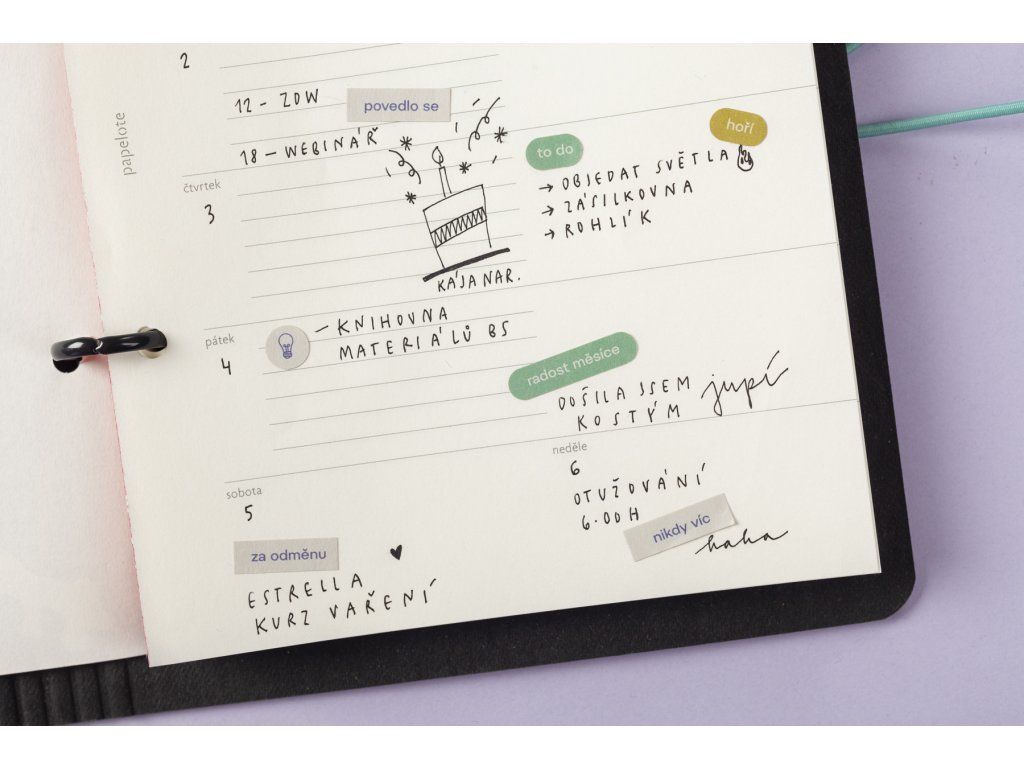 papelote
2
12 - ZOW
povedlo se
18 - WEBINÁŘ
čtvrtek
3
KÁJA NAR.
to do
hoří
→ OBJEDAT SVĚTLA
→ ZÁSILKOVNA
→ ROHLÍK
pátek
4
- KNIHOVNA
MATERIÁLŮ BS
radost měsíce
DOŠILA JSEM
KOSTÝM jupí
sobota
5
za odměnu
ESTRELLA
KURZ VAŘENÍ
neděle
6
OTUŽOVÁNÍ
6.00H
nikdy víc
haha